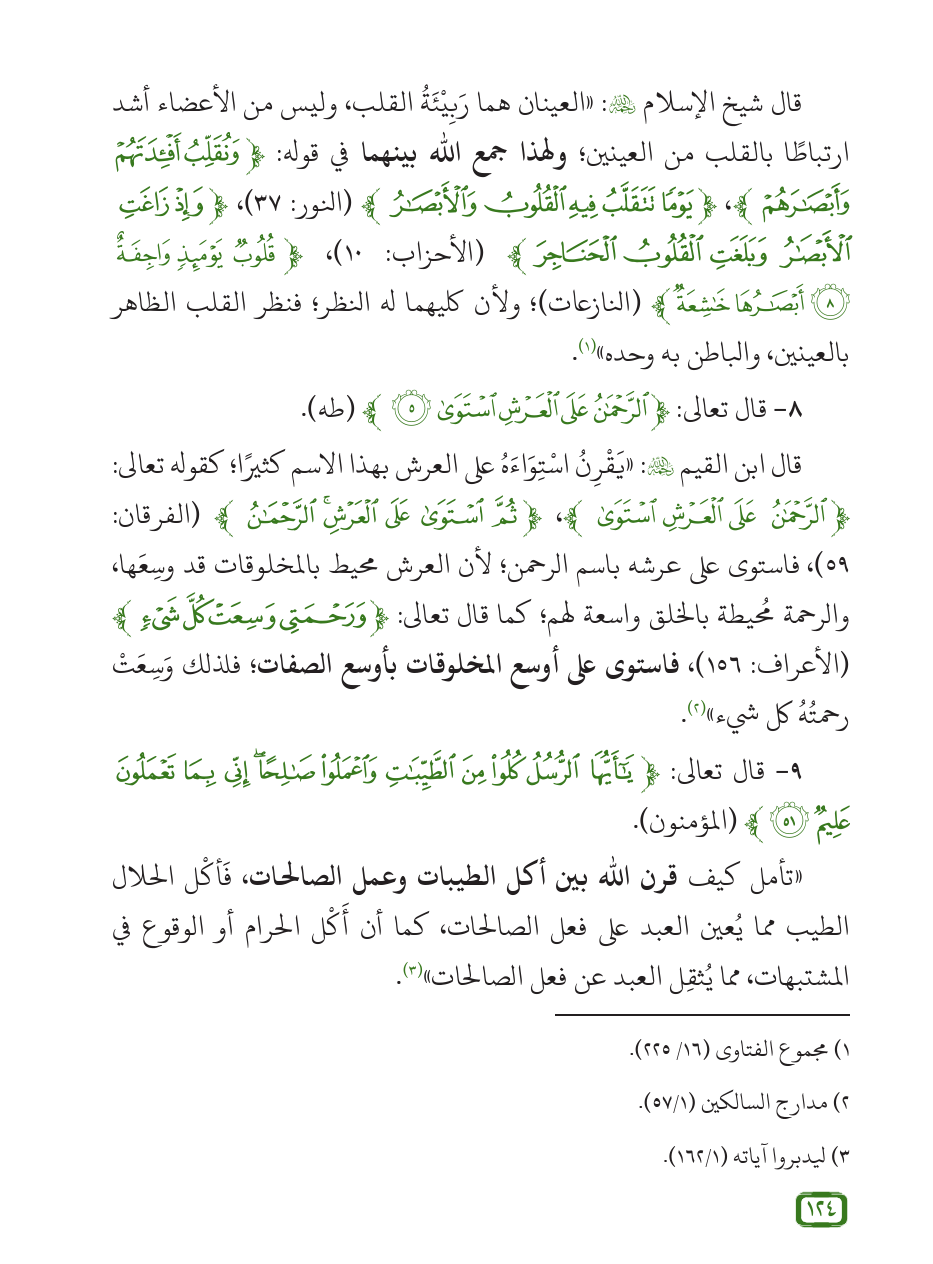 قال شيخ الإسلام ﵀: «العينان هما رَبِيْئَةُ القلب، وليس من الأعضاء أشد
ارتباطًا بالقلب من العينين؛ ولهذا جمع الله بينهما في قوله: ﴿ وَنُقَلِّبُ أَفْـِٔدَتَهُمْ
وَأَبْصَٰرَهُمْ ﴾، ﴿ يَوْمًا تَتَقَلَّبُ فِيهِ ٱلْقُلُوبُ وَٱلْأَبْصَٰرُ ﴾ (النور: ٣٧)، ﴿ وَإِذْ زَاغَتِ
ٱلْأَبْصَٰرُ وَبَلَغَتِ ٱلْقُلُوبُ ٱلْحَنَاجِرَ ﴾ (الأحزاب: ١٠)، ﴿ قُلُوبٌ يَوْمَئِذٍ وَاجِفَةٌ
٨ أَبْصَٰرُهَا خَٰشِعَةٌ ﴾ (النازعات)؛ ولأن كليهما له النظر؛ فنظر القلب الظاهر
بالعينين، والباطن به وحده»(١).
٨- قال تعالى: ﴿ ٱلرَّحْمَٰنُ عَلَى ٱلْعَرْشِ ٱسْتَوَىٰ ٥ ﴾ (طه).
قال ابن القيم ﵀: «يَقْرِنُ اسْتِوَاءَهُ على العرش بهذا الاسم كثيرًا؛ كقوله تعالى:
﴿ ٱلرَّحْمَٰنُ عَلَى ٱلْعَرْشِ ٱسْتَوَىٰ ﴾، ﴿ ثُمَّ ٱسْتَوَىٰ عَلَى ٱلْعَرْشِ ۚ ٱلرَّحْمَٰنُ ﴾ (الفرقان:
٥٩)، فاستوى على عرشه باسم الرحمن؛ لأن العرش محيط بالمخلوقات قد وسِعَها،
والرحمة مُحيطة بالخلق واسعة لهم؛ كما قال تعالى: ﴿ وَرَحْمَتِى وَسِعَتْ كُلَّ شَىْءٍ ﴾
(الأعراف: ١٥٦)، فاستوى على أوسع المخلوقات بأوسع الصفات؛ فلذلك وَسِعَتْ
رحمتُهُ كل شيء»(٢).
٩- قال تعالى: ﴿ يَٰٓأَيُّهَا ٱلرُّسُلُ كُلُوا۟ مِنَ ٱلطَّيِّبَٰتِ وَٱعْمَلُوا۟ صَٰلِحًا ۖ إِنِّى بِمَا تَعْمَلُونَ
عَلِيمٌ ٥١ ﴾ (المؤمنون).
«تأمل كيف قرن الله بين أكل الطيبات وعمل الصالحات، فَأكْل الحلال
الطيب مما يُعين العبد على فعل الصالحات، كما أن أَكْل الحرام أو الوقوع في
المشتبهات، مما يُثقِل العبد عن فعل الصالحات»(٣).
١) مجموع الفتاوى (١٦/ ٢٢٥).
٢) مدارج السالكين (٥٧/١).
٣) ليدبروا آياته (١٦٢/١).
١٢٤